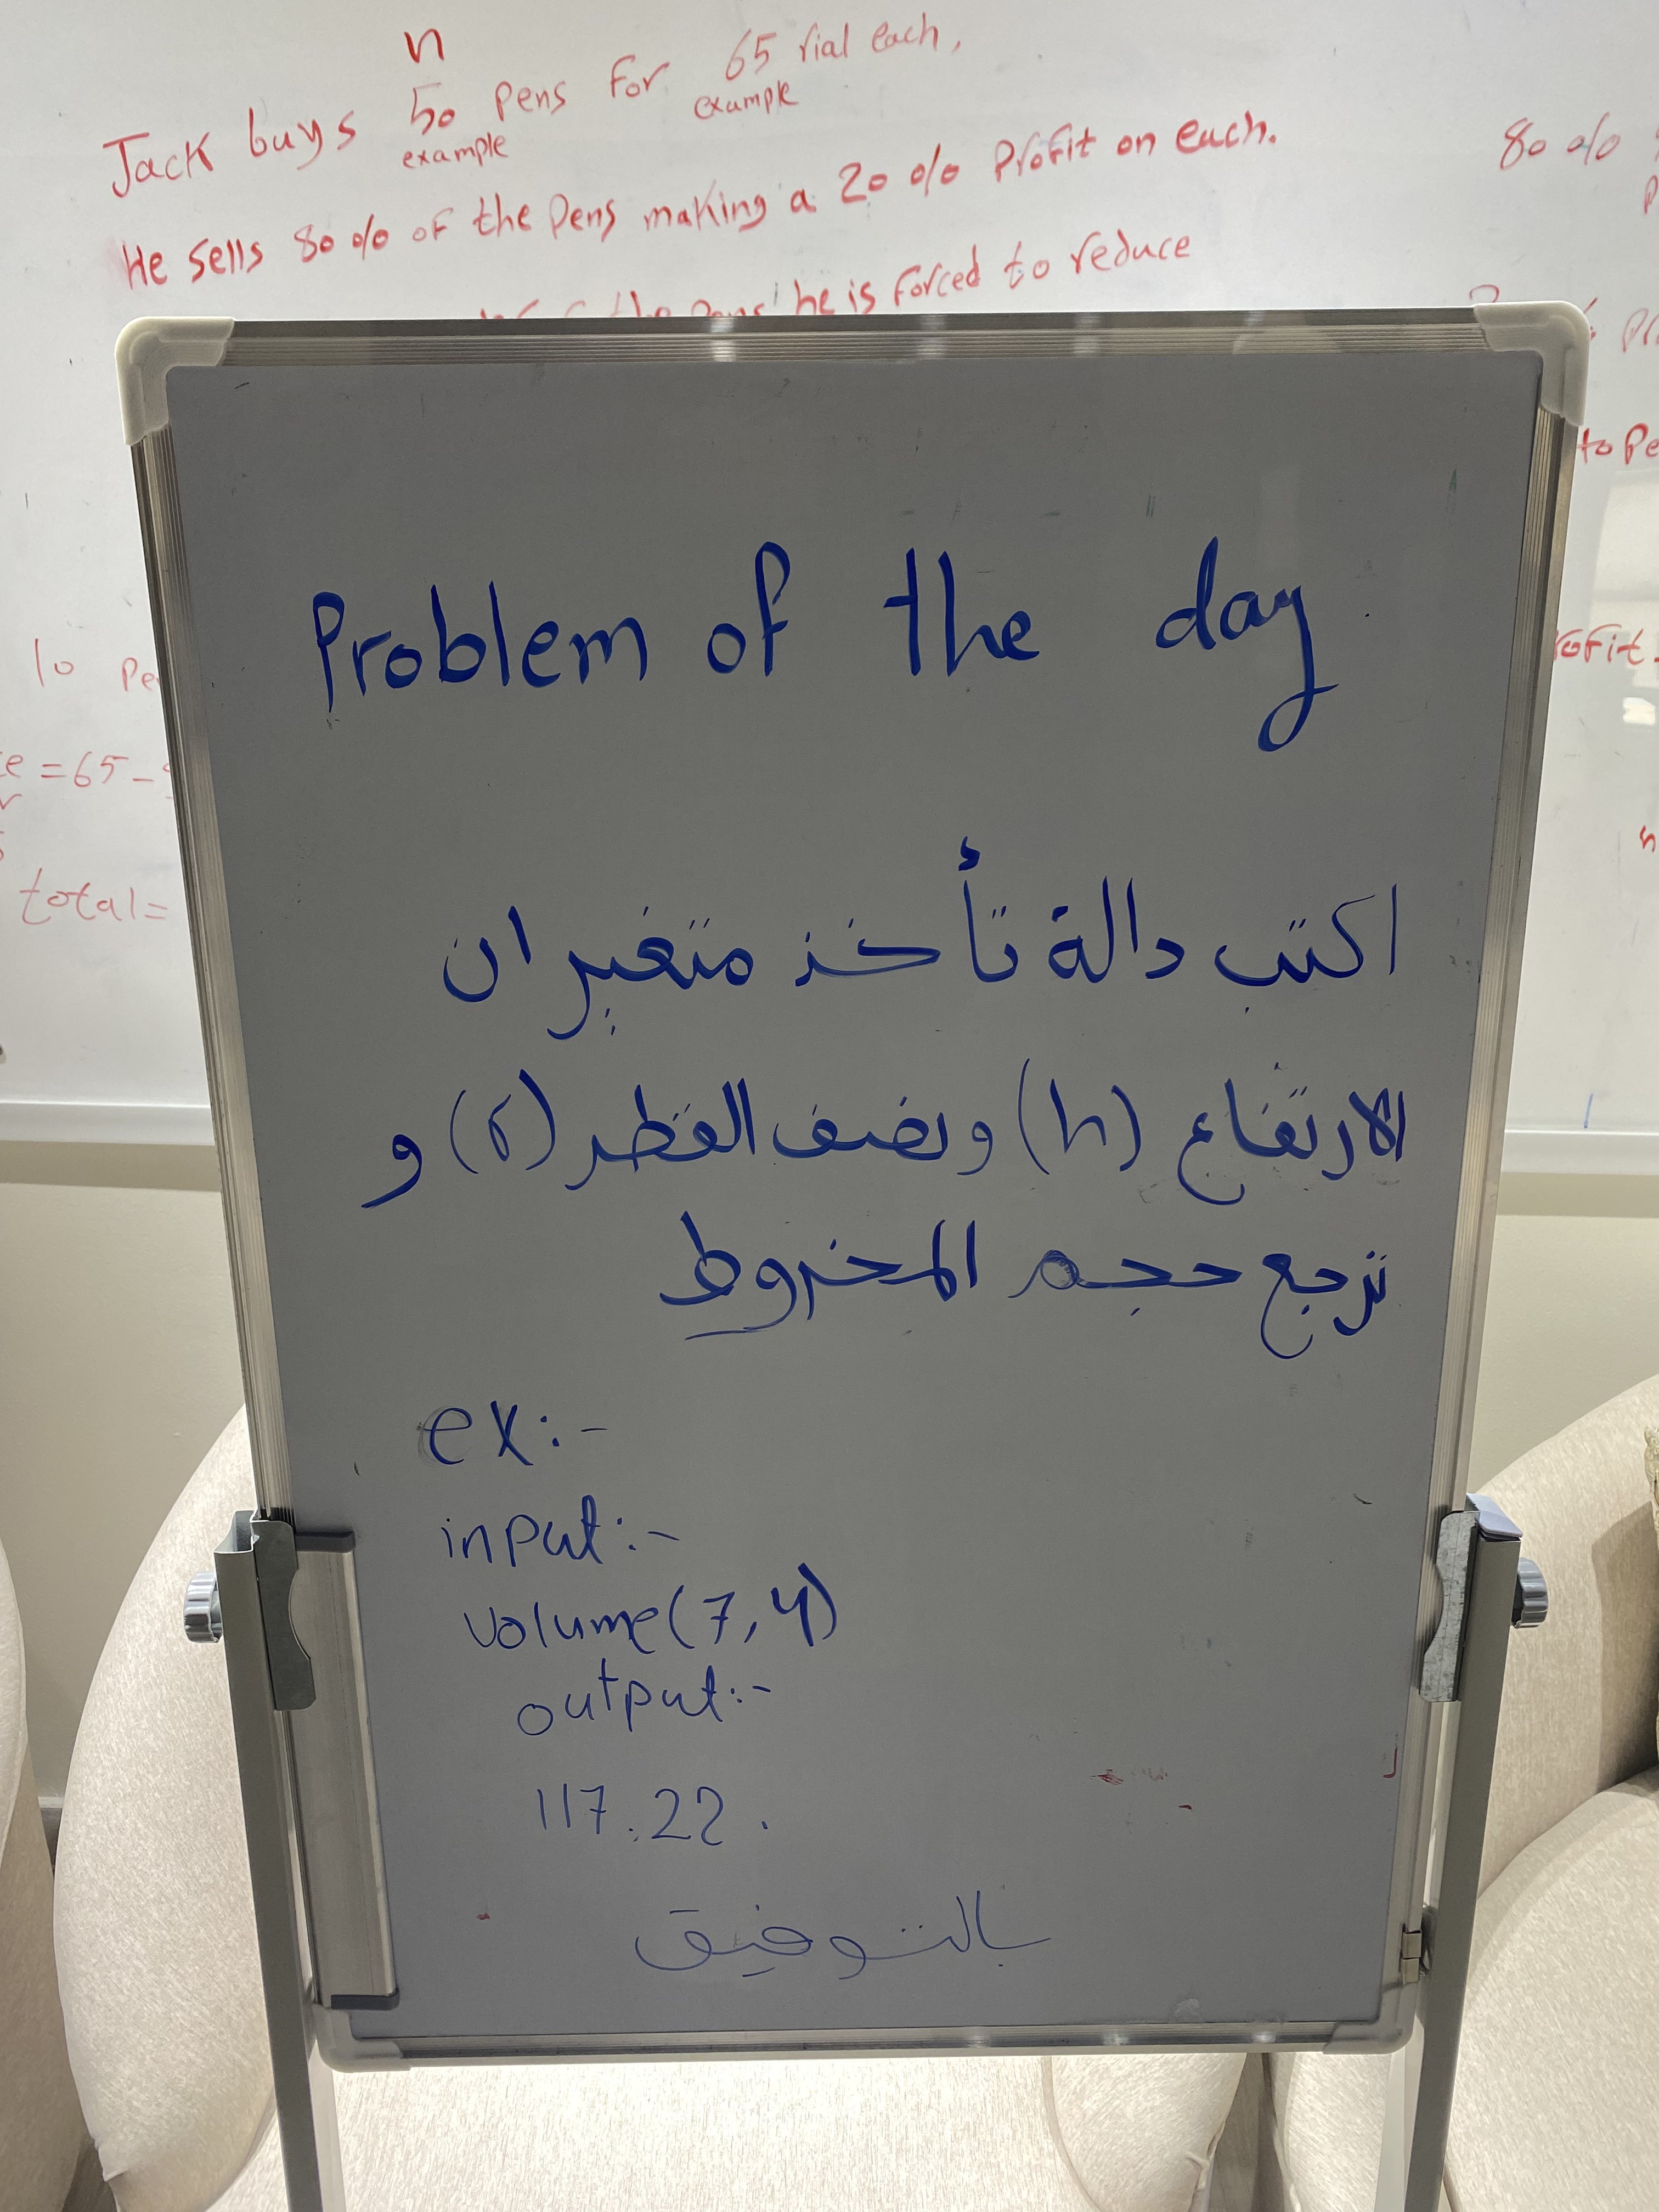 n
Jack buys 50 pens for 65 rial each,
example example
He sells 80 % of the pens making a 20 % profit on each.
the pens he is forced to reduce
80 %
10 Pe
= 65 -
total =
to Pe
Problem of the day
اكتب دالة تأخذ متغيران
الارتفاع (h) ونصف القطر (r) و
ترجع حجم المخروط
ex:-
input:-
volume(7,4)
output:-
117.22.
بالتوفيق